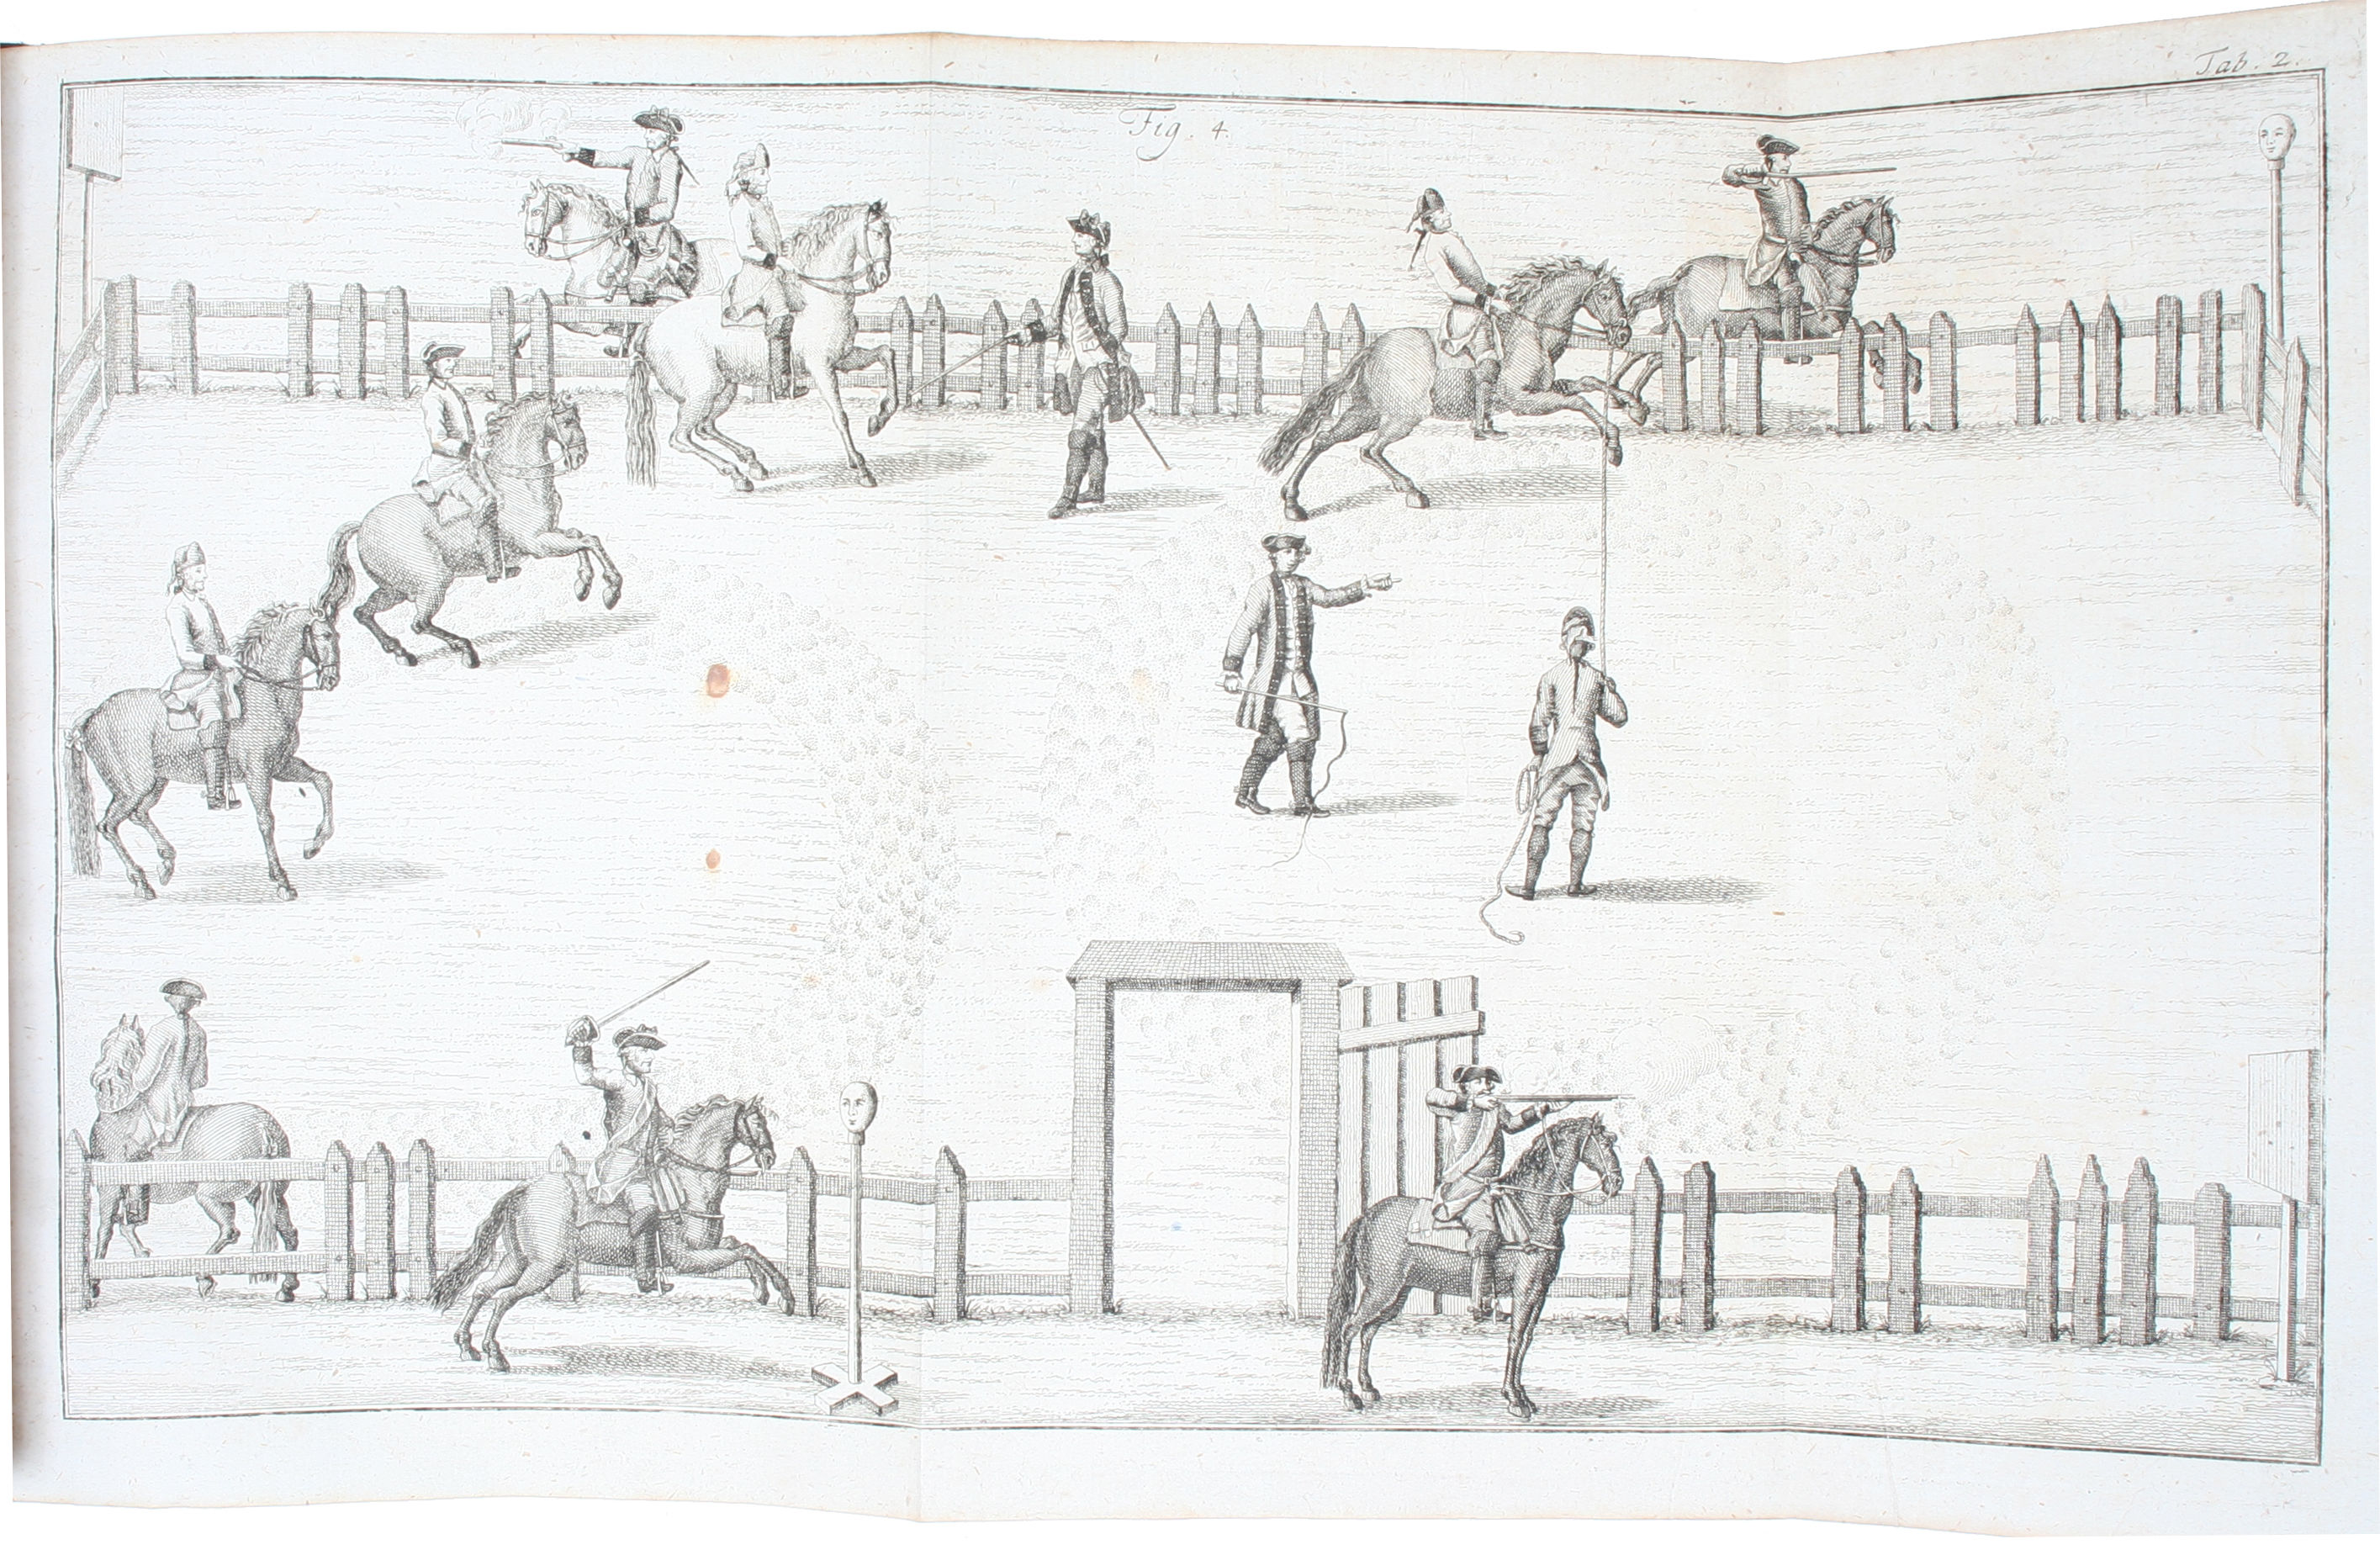 Tab. 2.
Fig. 4.